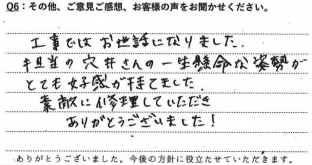 Q6：その他、ご意見ご感想、お客様の声をお聞かせください。
工事ではお世話になりました。
担当の穴井さんの一生懸命な姿勢が
とても好感が持てました。
素敵に修理していただき
ありがとうございました！
ありがとうございました。今後の方針に役立たせていただきます。